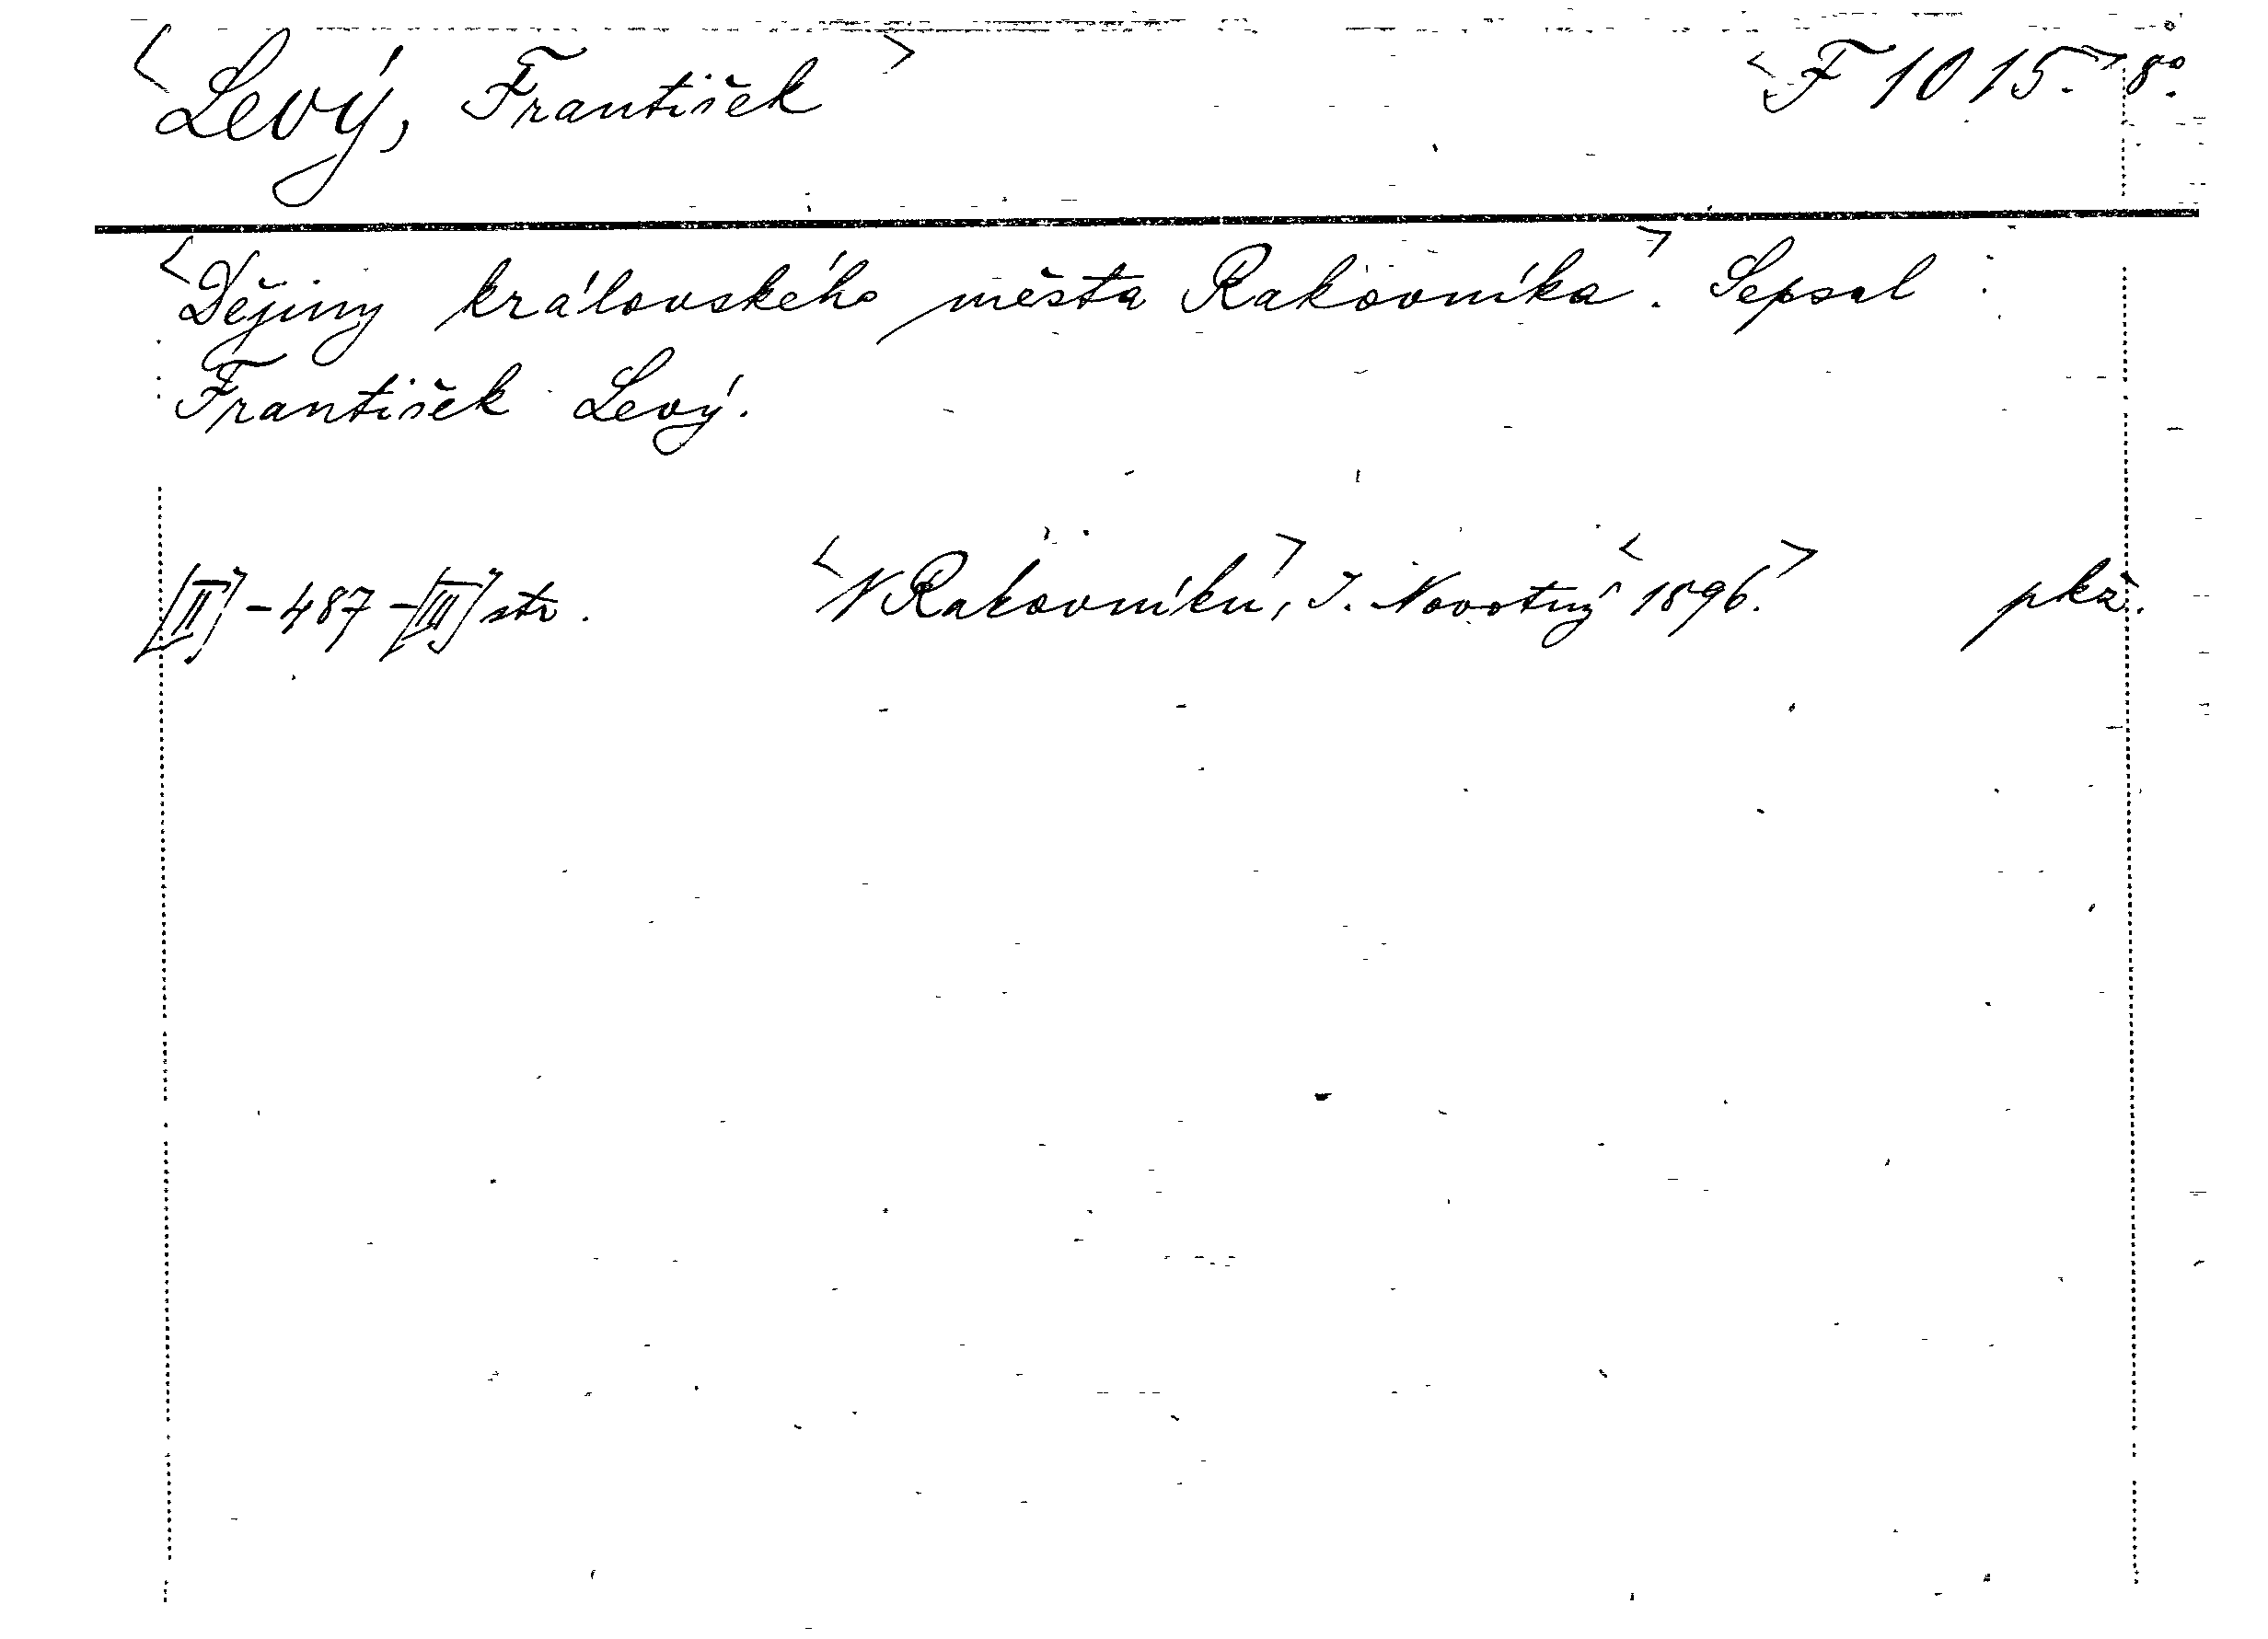 <Levý, František> <F 1015.> 8°.
<Dějiny královského města Rakovníka>. Sepsal
František Levý.
[II]-487-[III] str. <V Rakovníku>, I. Novotný <1896.> pkž.